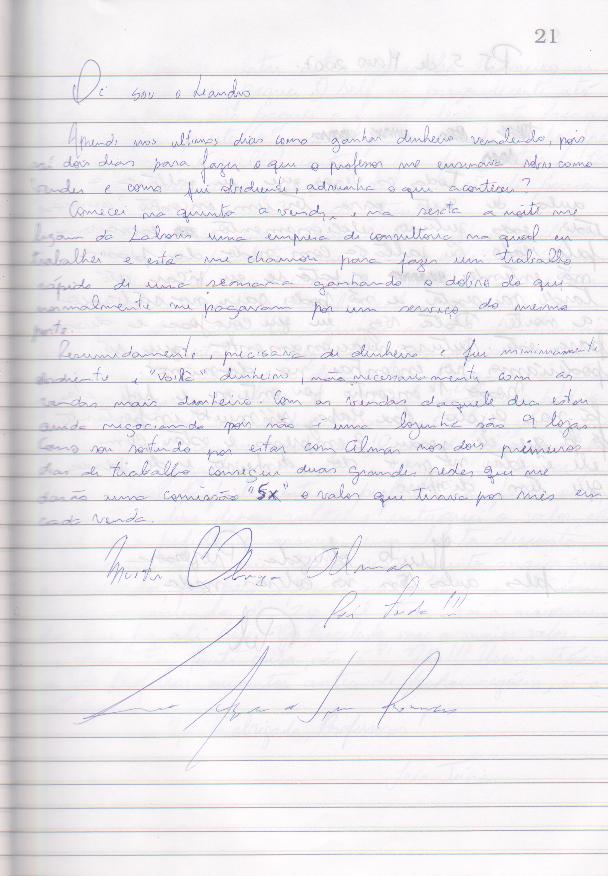 21
Oi sou o Leandro
Aprendi nos ultimos dias como ganhar dinheiro vendendo, pois
dois dias para fazer o que o professor me ensinava sobre como
vender e como fui obediente, advinha o que aconteceu?
Comecei na quinta a vender, e na sexta a noite me
ligam da Laboris uma empresa de consultoria na qual eu
trabalhei e esta me chamou para fazer um trabalho
rápido de uma semana ganhando o dobro do que
normalmente me pagavam por um serviço do mesmo
porte.
Resumidamente, precisava de dinheiro e fui minimamente
obediente e "voilà" dinheiro, não necessariamente com as
vendas mais dinheiro. Com as vendas daquele dia estou
ainda negociando pois não é uma lojinha são 9 lojas
Como sou sortudo por estar com Almar nos dois primeiros
dias de trabalho consegui duas grandes redes que me
darão uma comissão "5x" o valor que tirava por mês em
cada venda.
Muito Obrigado Almar
Por tudo!!!